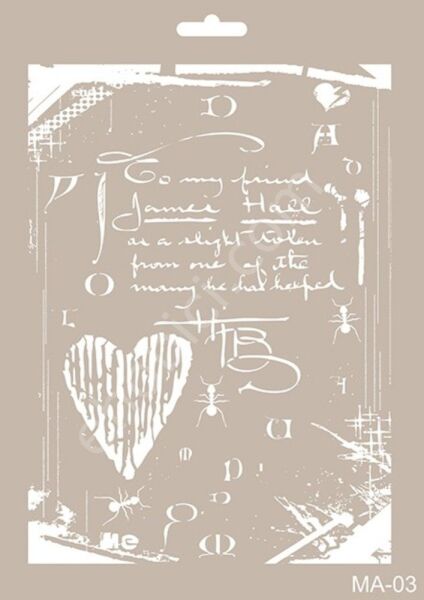 D
A
D
To my friend
James Hall
as a slight token
from one of the
many he has helped
O
L
HTB
U
Me
M
MA-03